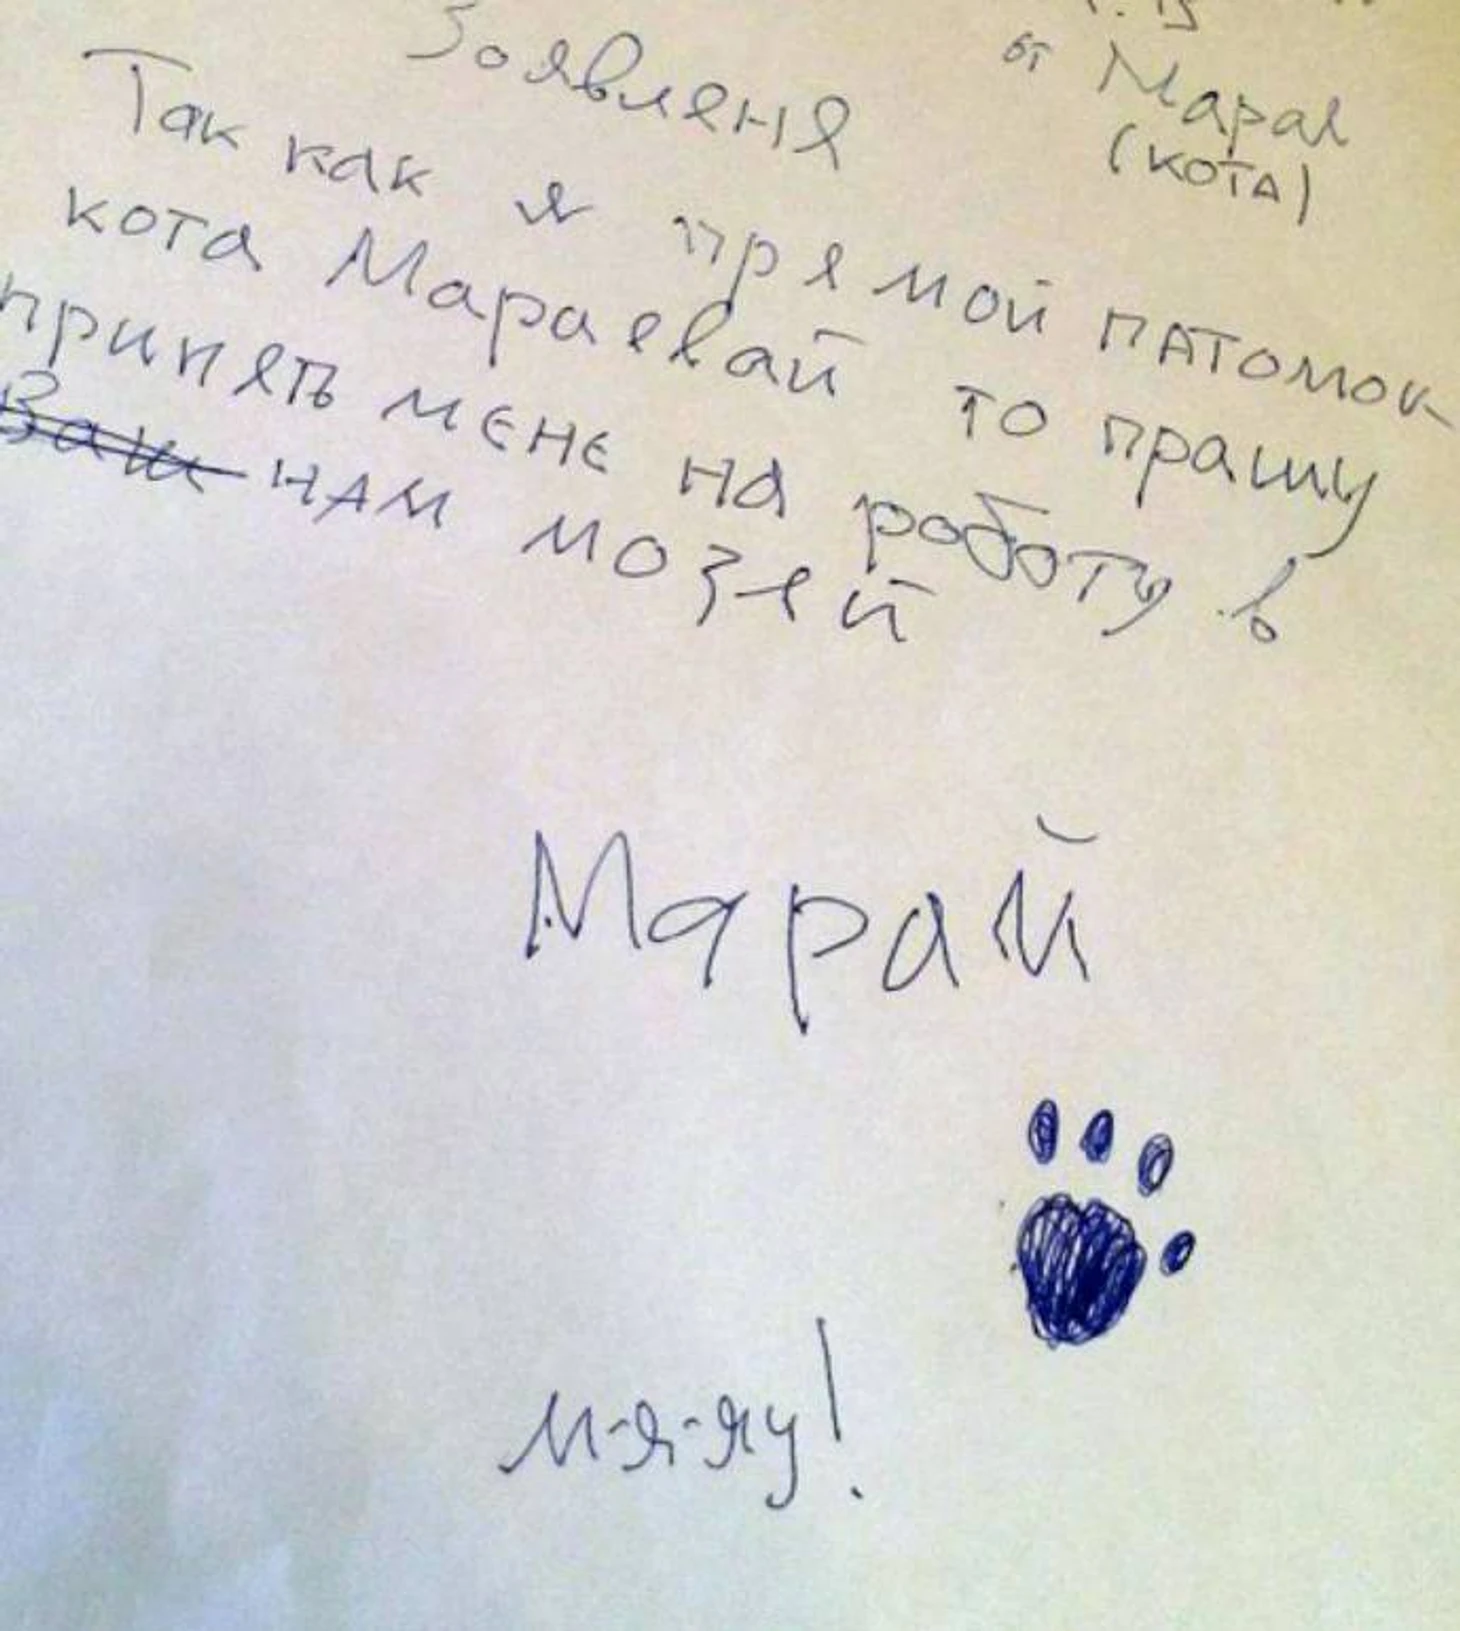 от Марая
(кота)
Зоявленя
Так как я прямой патомок
кота Мараевай то прашу
принять мене на роботу в
Ваш нам мозей
Марай
м-я-яу!